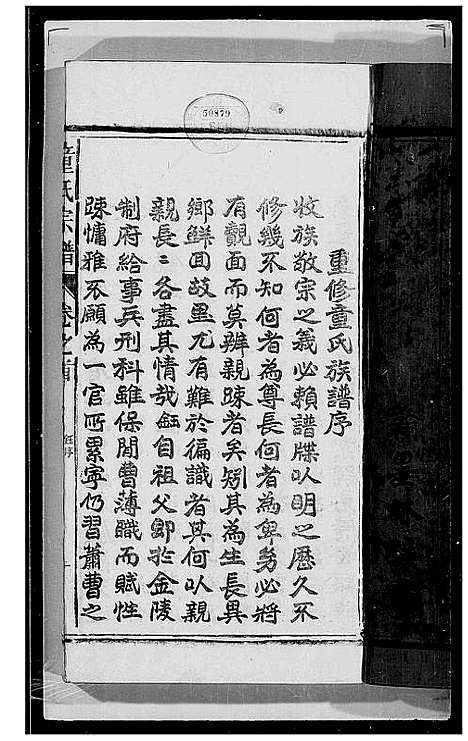 50879
重修童氏族譜序
收族敬宗之義必賴譜牒以明之歷久不
修幾不知何者為尊長何者為卑幼必將
有覿面而莫辨親疎者矣矧其為生長異
鄉鮮回故里尤有難於徧識者其何以親
親長〻各盡其情哉鈺自祖父即於金陵
制府給事兵刑科雖保閒曹薄職而賦性
踈慵雅不願為一官所累寧仍習蕭曹之
童氏宗譜 卷之首